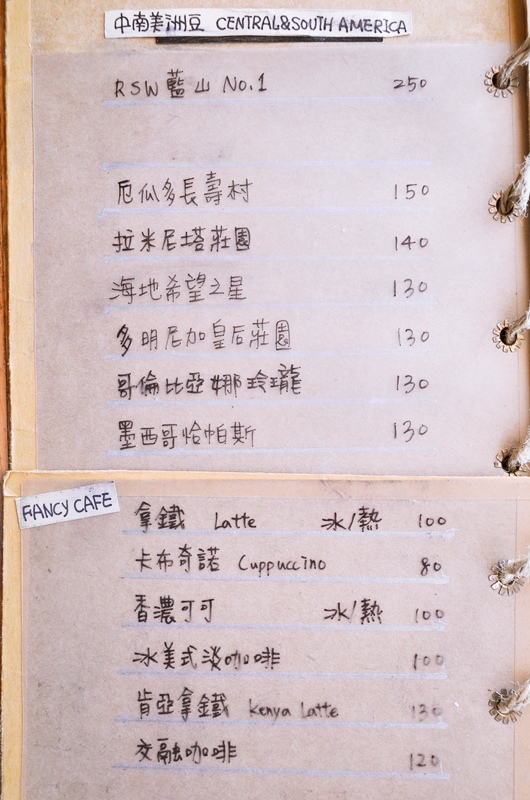 中南美洲豆 CENTRAL&SOUTH AMERICA
RSW 藍山 No.1 250
厄瓜多長壽村 150
拉米尼塔莊園 140
海地希望之星 130
多明尼加皇后莊園 130
哥倫比亞娜玲瓏 130
墨西哥恰帕斯 130
FANCY CAFE
拿鐵 Latte 冰/熱 100
卡布奇諾 Cuppuccino 80
香濃可可 冰/熱 100
冰美式淡咖啡 100
肯亞拿鐵 Kenya Latte 130
交融咖啡 120